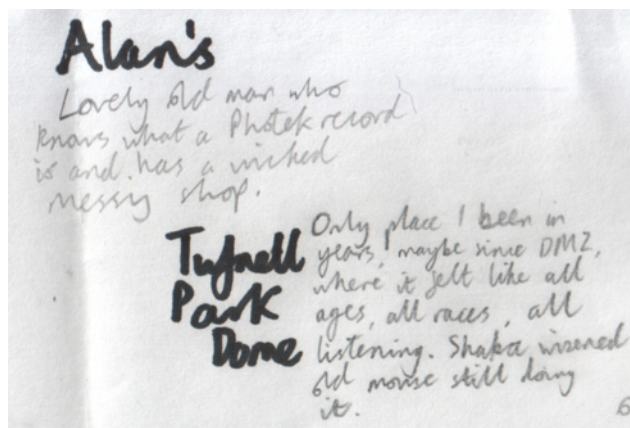 Alan's
Lovely old man who
knows what a Photek record
is and has a wicked
messy shop.
Tufnell
Park
Dome
Only place I been in
years, maybe since DMZ,
where it felt like all
ages, all races, all
listening. Shaka wizened
old mouse still doing
it.
6